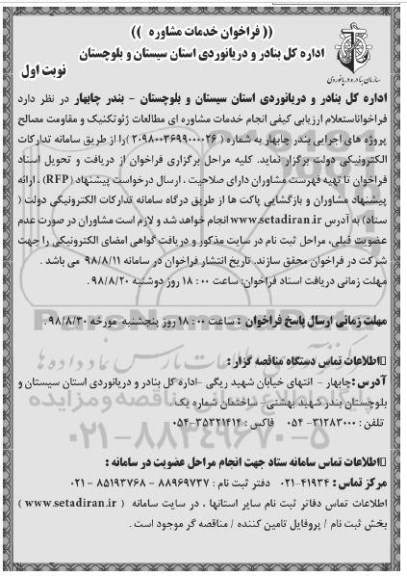 (( فراخوان خدمات مشاوره ))
اداره کل بنادر و دریانوردی استان سیستان و بلوچستان
نوبت اول
سازمان بنادر و دریانوردی
اداره کل بنادر و دریانوردی استان سیستان و بلوچستان - بندر چابهار در نظر دارد
فراخوان‌استعلام ارزیابی کیفی انجام خدمات مشاوره ای مطالعات ژئوتکنیک و مقاومت مصالح
پروژه های اجرایی بندر چابهار به شماره ( ۲۰۹۸۰۰۳۶۹۹۰۰۰۰۲۶ )را از طریق سامانه تدارکات
الکترونیکی دولت برگزار نماید. کلیه مراحل برگزاری فراخوان از دریافت و تحویل اسناد
فراخوان تا تهیه فهرست مشاوران دارای صلاحیت ، ارسال درخواست پیشنهاد (RFP) ، ارائه
پیشنهاد مشاوران و بازگشایی پاکت ها از طریق درگاه سامانه تدارکات الکترونیکی دولت (
ستاد) به آدرس www.setadiran.ir انجام خواهد شد و لازم است مشاوران در صورت عدم
عضویت قبلی، مراحل ثبت نام در سایت مذکور و دریافت گواهی امضای الکترونیکی را جهت
شرکت در فراخوان محقق سازند. تاریخ انتشار فراخوان در سامانه ۹۸/۸/۱۱ می باشد .
مهلت زمانی دریافت اسناد فراخوان: ساعت ۱۸:۰۰ روز دوشنبه ۹۸/۸/۲۰.
مهلت زمانی ارسال پاسخ فراخوان : ساعت ۱۸:۰۰ روز پنجشنبه مورخه ۹۸/۸/۳۰.
اطلاعات تماس دستگاه مناقصه گزار :
آدرس :چابهار - انتهای خیابان شهید ریگی -اداره کل بنادر و دریانوردی استان سیستان و
بلوچستان بندر شهید بهشتی- ساختمان شماره یک.
تلفن : ۳۱۲۸۳۰۰۰ - ۰۵۴ فاکس : ۳۵۳۲۱۴۱۴-۰۵۴
۰۲۱-۸۸۳۴۹۶۷۰-۵
اطلاعات تماس سامانه ستاد جهت انجام مراحل عضویت در سامانه :
مرکز تماس : ۴۱۹۳۴-۰۲۱ دفتر ثبت نام : ۸۸۹۶۹۷۳۷ - ۸۵۱۹۳۷۶۸ - ۰۲۱
اطلاعات تماس دفاتر ثبت نام سایر استانها ، در سایت سامانه ( www.setadiran.ir )
بخش ثبت نام / پروفایل تامین کننده / مناقصه گر موجود است .